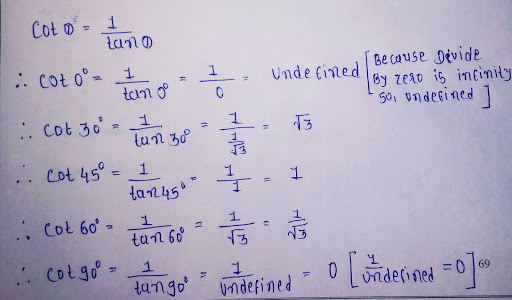 Cot θ° = 1/tan θ
∴ cot 0° = 1/tan 0° = 1/0 = Undefined [Because Divide By zero is infinity so, undefined]
∴ cot 30° = 1/tan 30° = 1/(1/√3) = √3
∴ cot 45° = 1/tan 45° = 1/1 = 1
∴ cot 60° = 1/tan 60° = 1/√3 = 1/√3
∴ cot 90° = 1/tan 90° = 1/Undefined = 0 [1/undefined = 0] 69